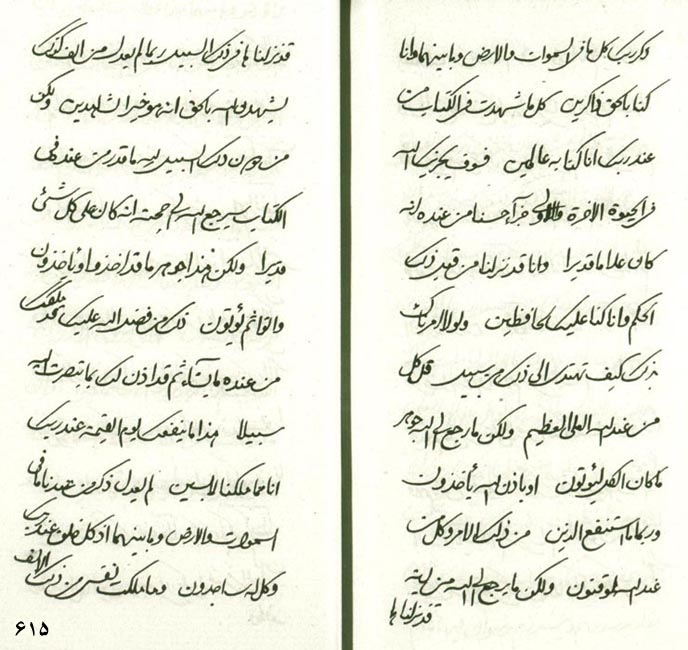 ذكر ربك كل ما في السموات والارض وما بينهما وانا
كنا بالحق ذاكرين كل ما شهدت في الكتاب من
عند ربك انا كنا به عالمين فسوف يجزيك الله
في الحيوة الاخرة والاولى جزآء حسنا من عنده انه
كان علاما قديرا وانا قد نزلنا من قبل ذلك
الحكم وانا كنا عليك لحافظين ولولا امر ربك
بذلك كيف تهتدى الى ذلك من سبيل قل كل
من عند الله العلي العظيم ولكن ما رجع الى الله
ما كان الكل ليؤتون او باذن الله يأخذون
وربما استنفع الذين من ذلك الامر وكل من
عند الله لموقنون ولكن ما يرجع الى الله من
قد نزلنا ها
قد نزلنا ها في ذلك السبيل ربما لم يعدل من الف
ليشهدوا لله بالحق انه هو خير الشاهدين ولكن
من دون ذلك السبيل لله ما قدر من عند في
الكتاب سيرجع الله الى حجته انه كان على كل شئ
قديرا ولكن هذا جوهر ما قد اخذوا او يأخذون
واتوا ثم يؤتون ذلك من فضل الله عليك قد
من عنده ما يشاء ثم قد اذن لك بما تبصرت اليه
سبيلا هذا ما ينفعك يوم القيمة عند ربك
انا مما ملكنا لم يعدل ذكر من
السموات والارض وما بينهما اذ كل خلق عند ربك
وكل له ساجدون وما ملكت نفس من ذلك
۶۱۵